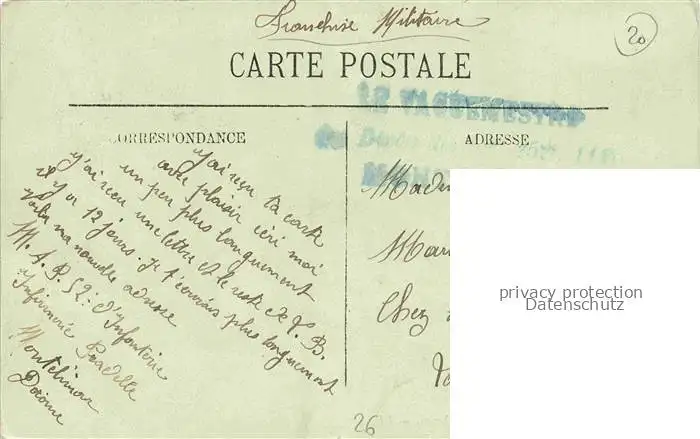 Franchise Militaire
20
CARTE POSTALE
LE VAGUEMESTRE
CORRESPONDANCE
ADRESSE
j'ai reçu ta carte
avec plaisir écri moi
un peu plus longuement
j'ai reçu une lettre et le reste de
il y a 12 jours. Je t'écrirais plus longuement
Voila ma nouvelle adresse
M. A. P. 52e d'Infanterie
Infirmerie
Montélimar
Drôme
Mad
Mar
Chez
26
privacy protection
Datenschutz